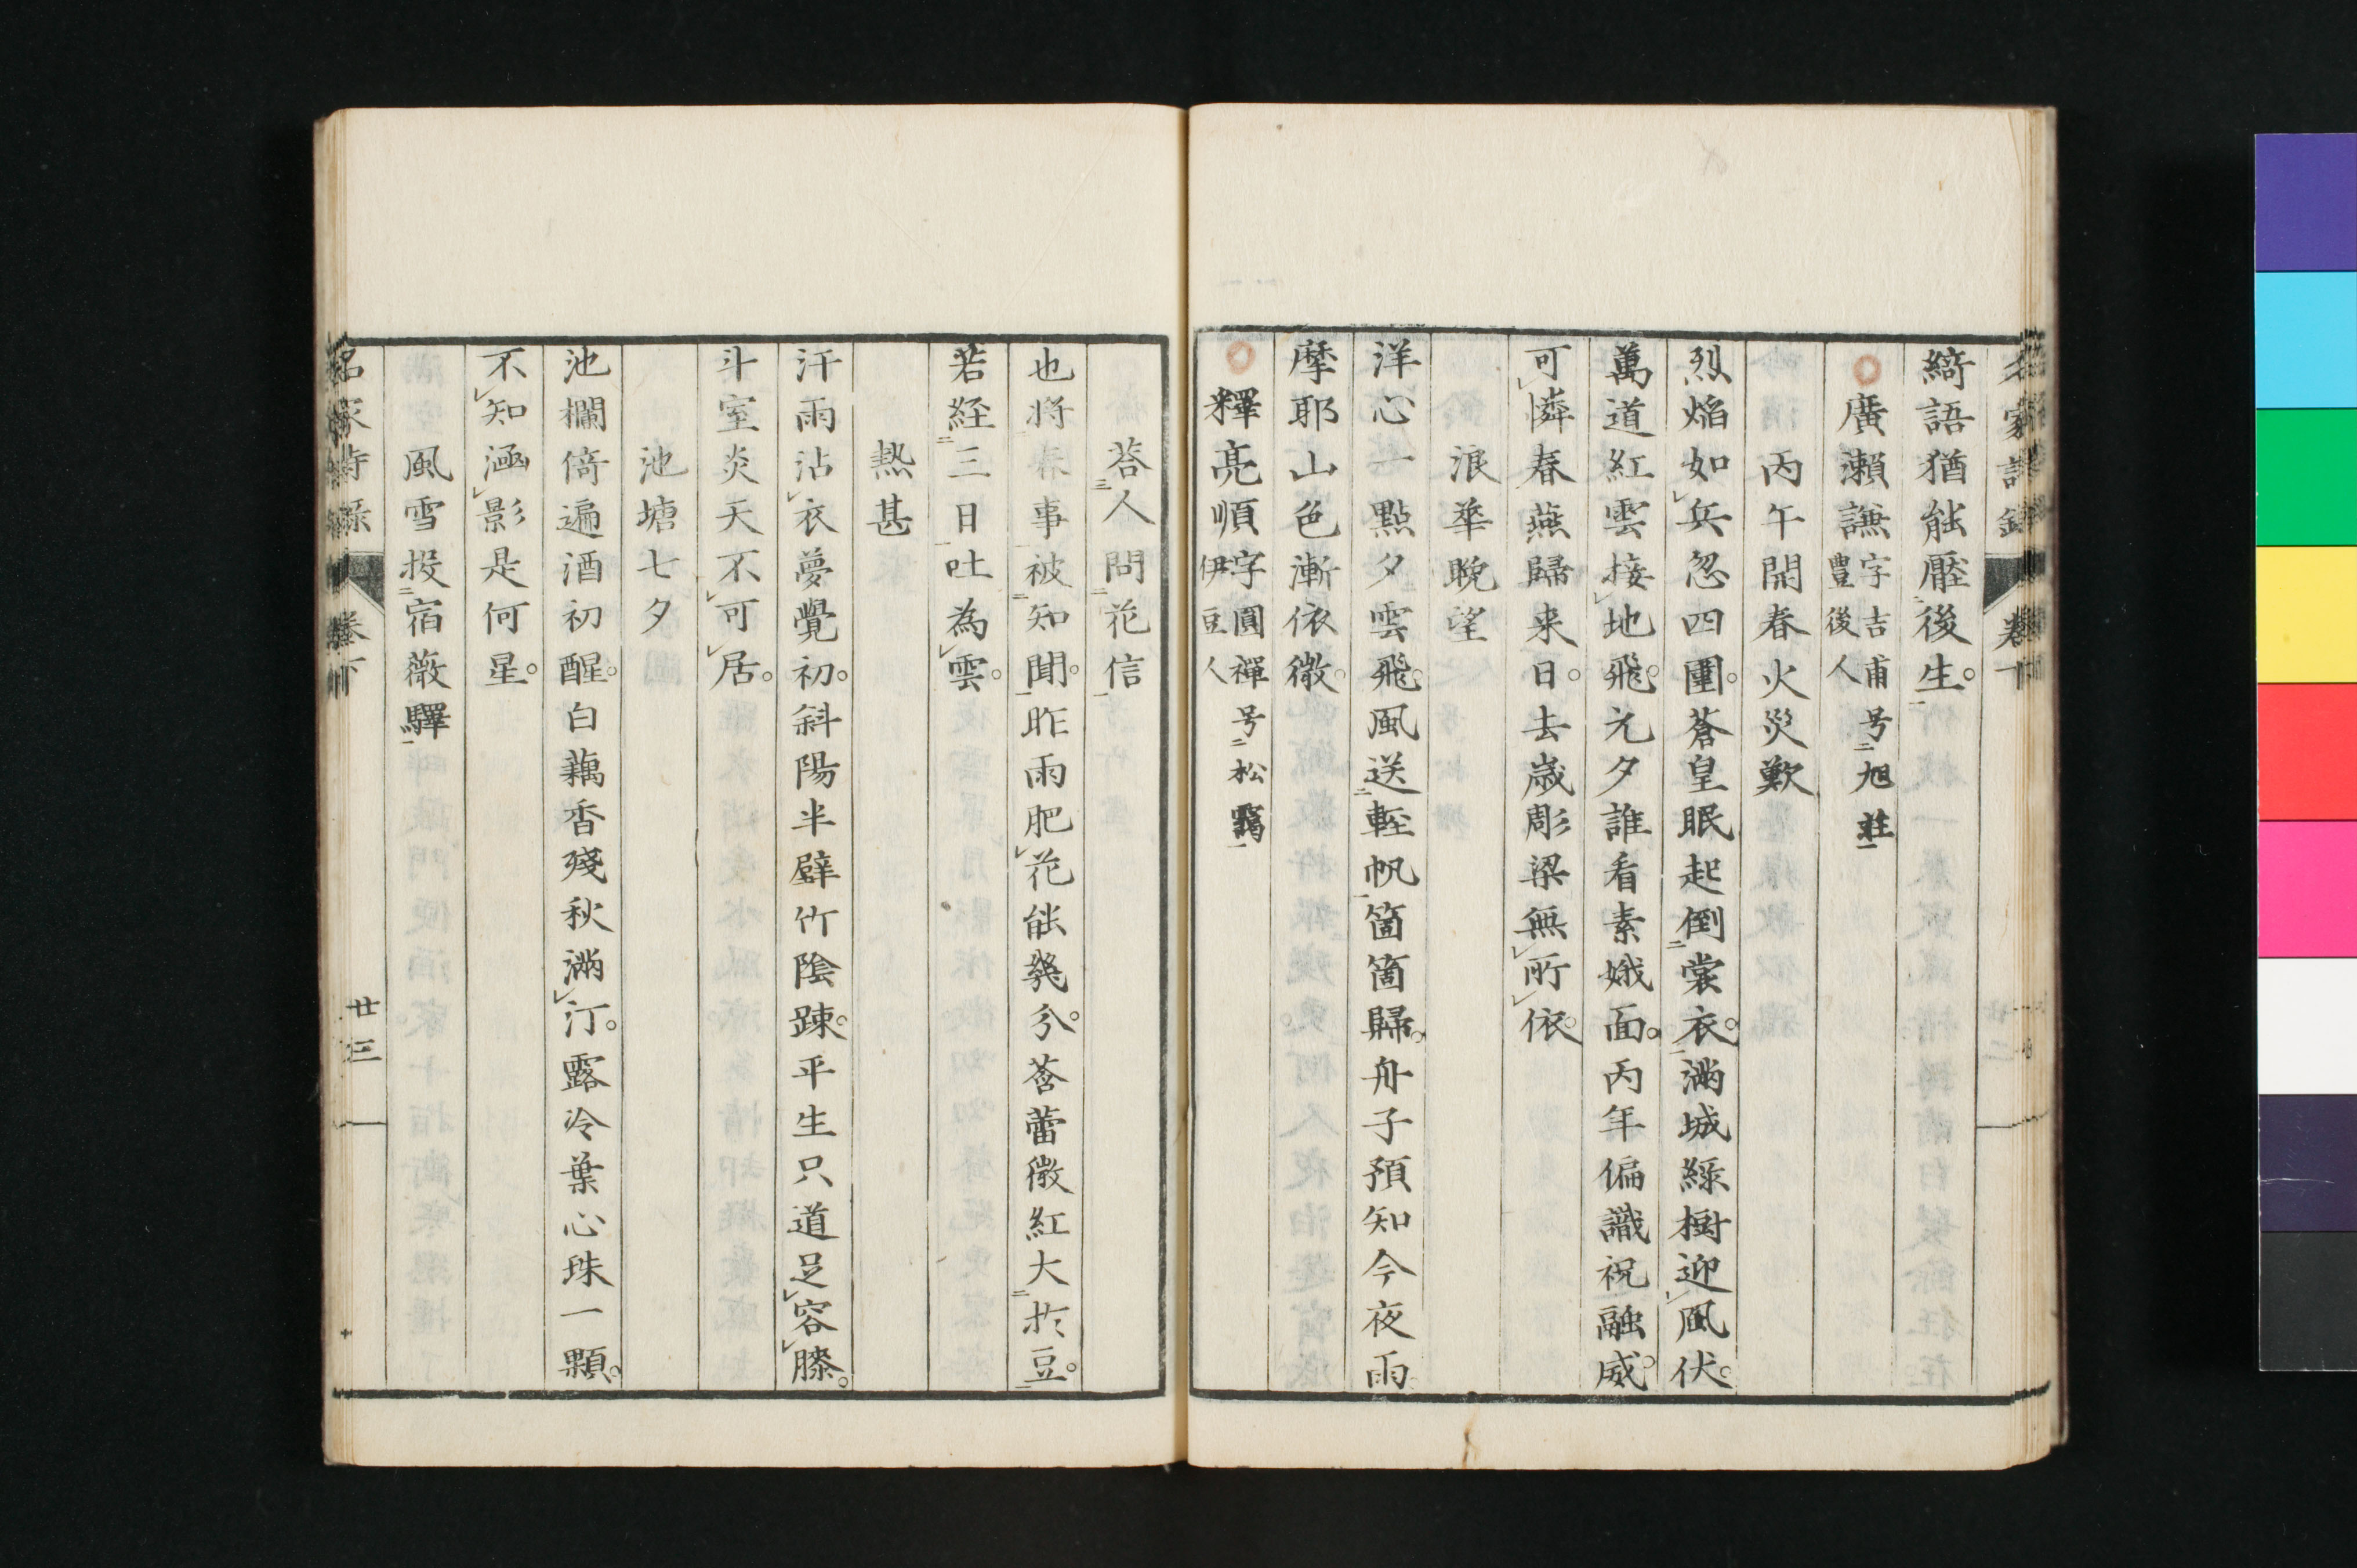 名家詩録 卷下
綺語猶能壓後生。
廣瀨謙 字吉甫号旭莊
豊後人
丙午開春火災歎
烈焔如兵忽四圍。蒼皇眠起倒裳衣。滿城綠樹迎風伏。
萬道紅雲接地飛。元夕誰看素娥面。丙年偏識祝融威。
可憐春燕歸来日。去歳彫梁無所依。
浪華晩望
洋心一點夕雲飛。風送輕帆箇箇歸。舟子預知今夜雨
摩耶山色漸依微。
釋亮順 字圓禪号松靄
伊豆人
荅人問花信
也將春事被知聞。昨雨肥花能幾分。蓓蕾微紅大於豆。
若経三日吐為雲。
熱甚
汗雨沾衣夢覺初。斜陽半壁竹陰踈。平生只道足容膝。
斗室炎天不可居。
池塘七夕
池欄倚遍酒初醒。白藕香殘秋滿汀。露冷葉心珠一顆。
不知涵影是何星。
風雪投宿薇驛
名家詩録 卷下 廿三